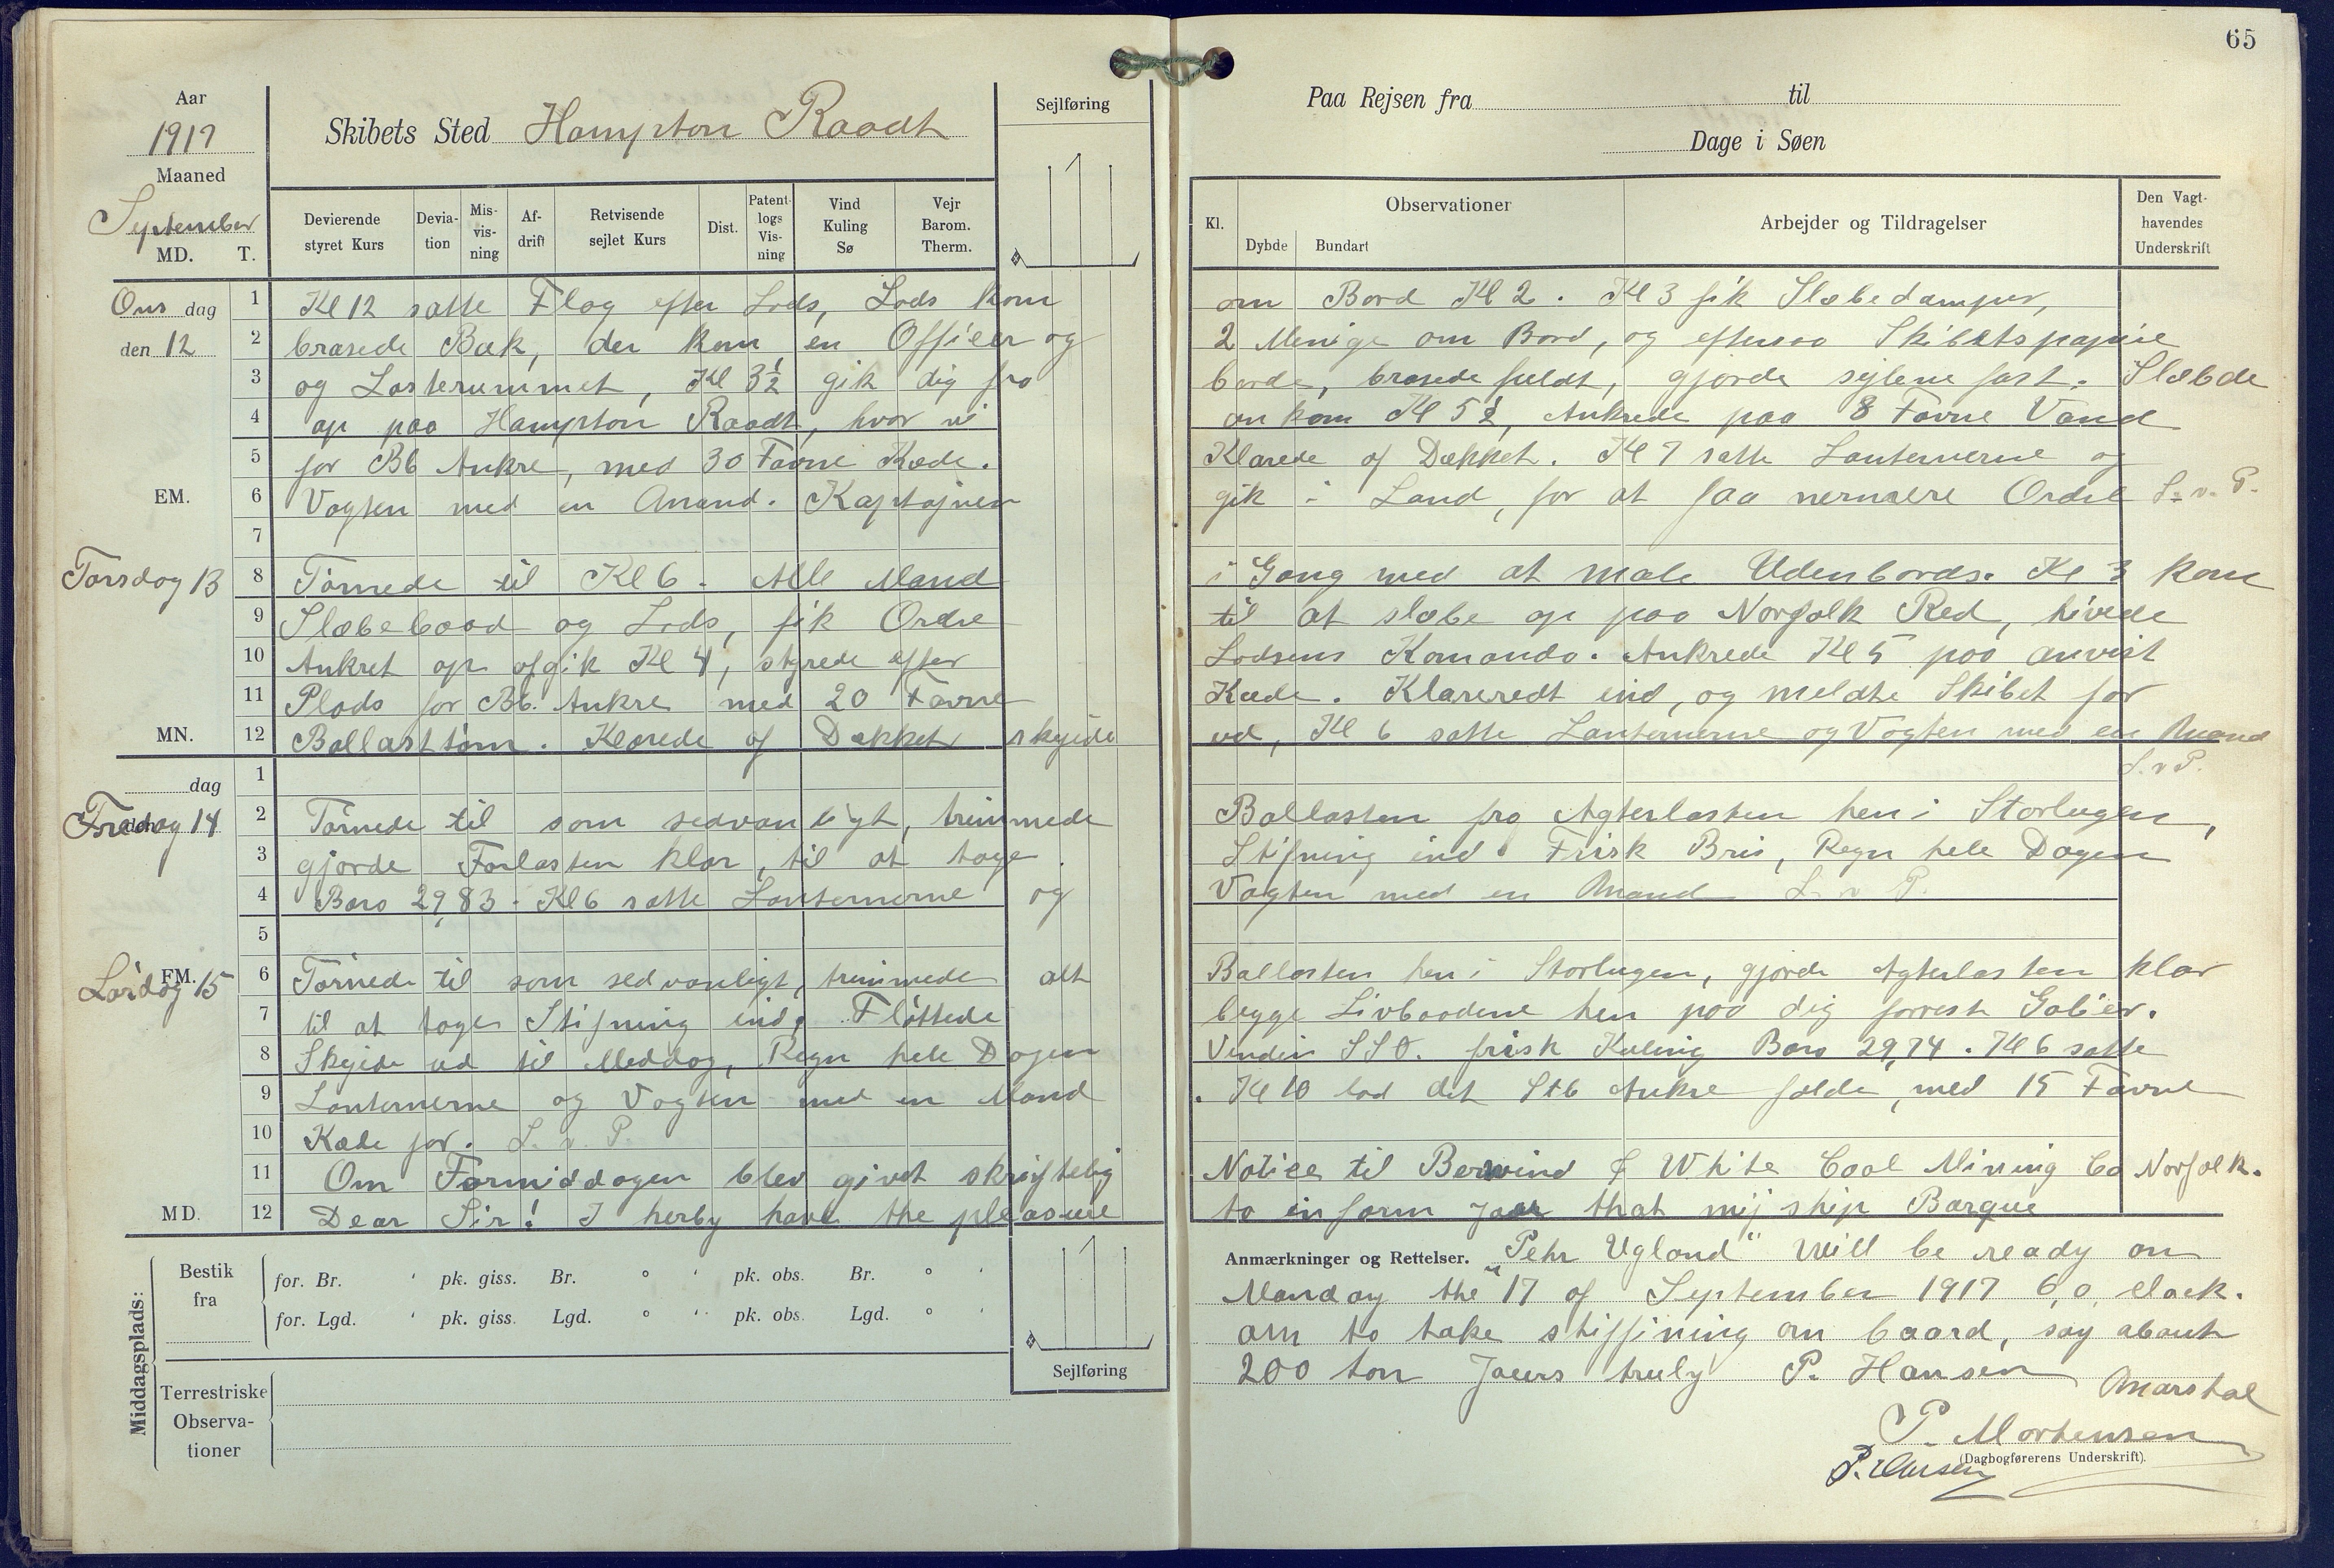 65
Aar
1917
Maaned
September
MD. T.
Skibets Sted Hampton Raadt
Sejlføring
Devierende styret Kurs
Deviation
Misvisning
Afdrift
Retvisende sejlet Kurs
Dist.
Patentlogs Visning
Vind Kuling Sø
Vejr Barom. Therm.
Paa Rejsen fra til
Dage i Søen
Kl.
Observationer
Dybde Bundart
Arbejder og Tildragelser
Den Vagthavendes Underskrift
Ons dag
den 12
1 Kl 12 satte Flag efter Lods, Lods kom om Bord Kl 2. Kl 3 fik Slæbedamper,
2 brasede Bak, der kom en Officer og 2 Menige om Bord, og eftersaa Skibets papire
3 og Lasterummet, Kl 3½ gik dig fra borde, brasede fuldt, gjorde sejlene fast. Slæbde
4 op paa Hampton Raadt, hvor vi ankom Kl 5½, Ankrede paa 8 Favne Vand
5 for Bb Ankre, med 30 Favne Kæde. Klarede af Dækket. Kl 7 satte Lanternerne og
EM. 6 Vagten med en Mand. Kaptajnen gik i Land, for at faa nermere Ordre L. v. P.
7
Torsdag 13
8 Törnede til Kl 6. Alle Mand i Gang med at male Udenbords. Kl 3 kom
9 Slæbebaad og Lods, fik Ordre til at slæbe op paa Norfolk Red, hivede
10 Ankret op afgik Kl 4, styrede efter Lodsens Komando. Ankrede Kl 5 paa anvist
11 Plads for Bb. Ankre med 20 Favne Kæde. Klareredt ind, og meldte Skibet for
MN. 12 Ballasttöm. Klarede af Dækket skejede ud, Kl 6 satte Lanternerne og Vagten med en Mand
L. v P.
dag
1
Fredag 14
den
2 Törnede til som sedvanligt, trimmede Ballasten fra Agterlasten hen i Storlugen,
3 gjorde Forlasten klar, til at tage Stifning ind. Frisk Bris, Regn hele Dagen
4 Baro 29,83. Kl 6 satte Lanternerne og Vagten med en Mand L. v P.
5
Lördag 15
FM.
6 Törnede til som sedvanligt, trimmede alt Ballasten hen i Storlugen, gjorde Agterlasten klar
7 til at tage Stifning ind. Flöttede begge Livbaadene hen paa dig forrest Galier.
8 Skejede ud til Meddag, Regn hele Dagen Vinden SSO. frisk Kuling Baro 29,74. Kl 6 satte
9 Lanternerne og Vagten med en Mand. Kl 10 lod det Stb Ankre falde, med 15 Favne
10 Kæde for. L. v. P.
11 Om Formiddagen blev givet skriftelig Notice til Berwind & White Coal Mining Co Norfolk.
MD. 12 Dear Sir! I herby have the pleasure to inform jaur that mij ship Barque
Anmærkninger og Rettelser. "Pehr Ugland" Will be ready on
Manday the 17 of September 1917 6,0, clack.
am to take stiffining on baard, say about
200 ton Jaurs truly P. Hansen
Marstal
P. Mortensen
(Dagbogførerens Underskrift).
Middagsplads:
Bestik fra
for. Br. ' pk. giss. Br. ° ' pk. obs. Br. ° '
for. Lgd. ' pk. giss. Lgd. ° ' pk. obs. Lgd. ° '
Sejlføring
Terrestriske Observationer